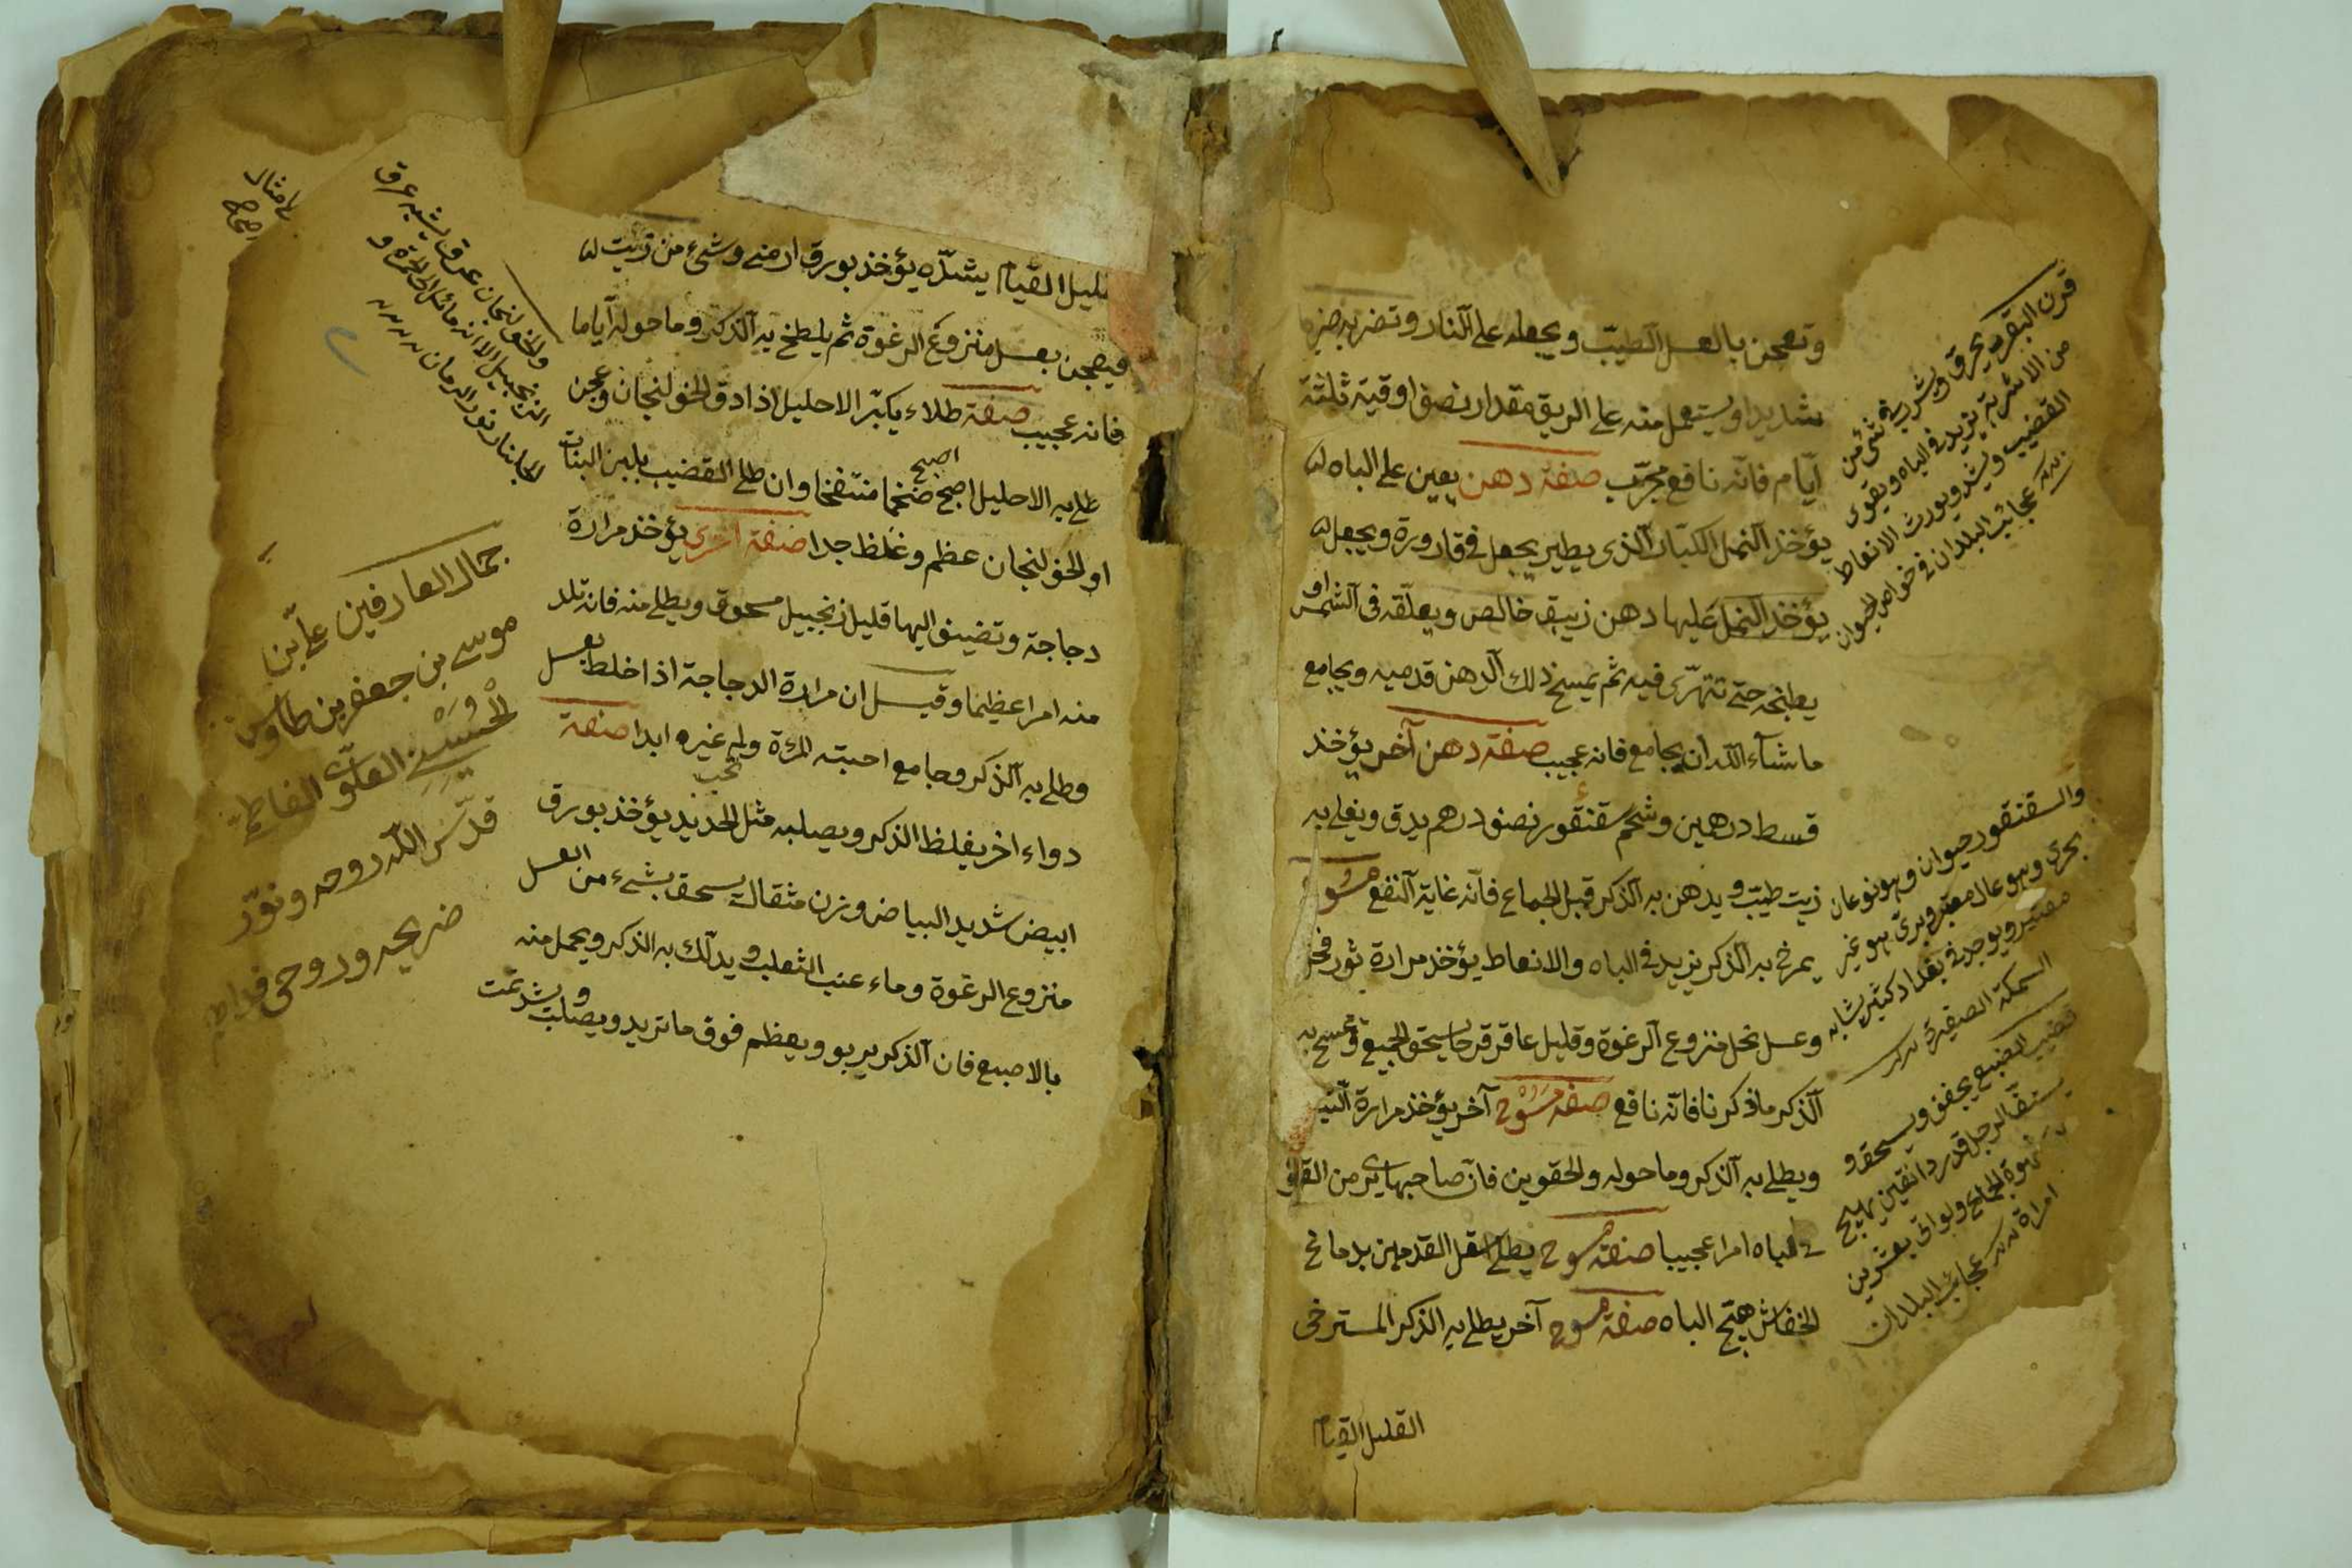 وتعجن بالعسل الطيّب ويجعله على النار وتضربه ضربا
شديدا ويستعمل منه على الريق مقدار نصف اوقية ثلثة
أيّام فانّه نافع مجرّب صفة دهن يعين على الباه
يؤخذ النمل الكبار الذى يطير يجعل فى قارورة ويجعل
يؤخذ النمل عليها دهن زيبق خالص ويعلّقه فى الشمس او
يطبخه حتى تتهرّى فيه ثم يمسخ ذلك الدهن قدميه ويجامع
ماشاء الله ان يجامع فانه عجيب صفة دهن آخر يؤخذ
قسط درهمين وشحم سقنقور نصف درهم يدق ويغلى به
زيت طيّب ويدهن به الذكر قبل الجماع فانّه غاية النفع مسوح
يمرخ به الذكر يزيد فى الباه والانعاظ يؤخذ مرارة ثور فحل
وعسل نحل منزوع الرغوة وقليل عاقرقرحا يسحق الجميع وتمسح به
الذكر ماذكرنا فانّه نافع صفة مسوح آخر يؤخذ مرارة التيس
ويطلى به الذكر وماحوله والحقوين فانّ صاحبها يرى من القوة
فى الباه امرا عجيبا صفة مسوح يطلى اسفل القدمين بدماغ
الخفاش يهيّج الباه صفة مسوح آخر يطلى به الذكر المسترخى
القليل القيام
قرن البقر يحرق ويشرب فى شئ من
من الاشربة يزيد فى الباه ويقوى
القضيب ويشد ويورث الانعاظ
عجائب البلدان فى خواص الحيوان
والسقنقور حيوان وهو نوعان
بحرى وهو عال معتبر وبرى هو غير
معتبر ويوجد فى بغداد كثير يشابه
السمكة الصغيرة
قضيب الضبع يجفف ويسحق و
يستفه الرجل قدر دانقين يهيج
شهوة الجماع ولو اتى بعشرين
امراة عجائب البلدان
القليل القيام يشدّه يؤخذ بورق ارمنى وشئ من زيت
فيعجن بعسل منزوع الرغوة ثم يلطخ به الذكر وماحوله أياما
فانه عجيب صفة طلاء يكبّر الاحليل اذا دق الخولنجان وعجن
طلى به الاحليل اصبح ضخما منتفخا وان طلى القضيب بلبن البنات
اصبح
او الخولنجان عظم وغلظ جدا صفة اخرى يؤخذ مرارة
دجاجة وتضيف اليها قليل زنجبيل مسحوق ويطلى منه فانه تلد
منه امرا عظيما وقيل ان مرارة الدجاجة اذا خلط بعسل
وطلى به الذكر وجامع احبته المرءة ولم غيره ابدا صفة
تحب
دواء اخر يغلظ الذكر ويصلبه مثل الحديد يؤخذ بورق
ابيض شديد البياض وزن مثقال يسحق بشئ من العسل
منزوع الرغوة وماء عنب الثعلب ويدلك به الذكر ويحمل منه
بالاصبع فان الذكر يربو ويعظم فوق ماتريد ويصلب ويشد تمت
والخولنجان عرق يشبه عرق
الزنجبيل الا انه مائل الى الحمرة و
الجلنار نور الرمان
جمال العارفين على بن
موسى بن جعفر بن طاوس
الحسنى العلوى الفاطمى
قدّس الله روحه ونوّر
ضريحه وروحى فداه